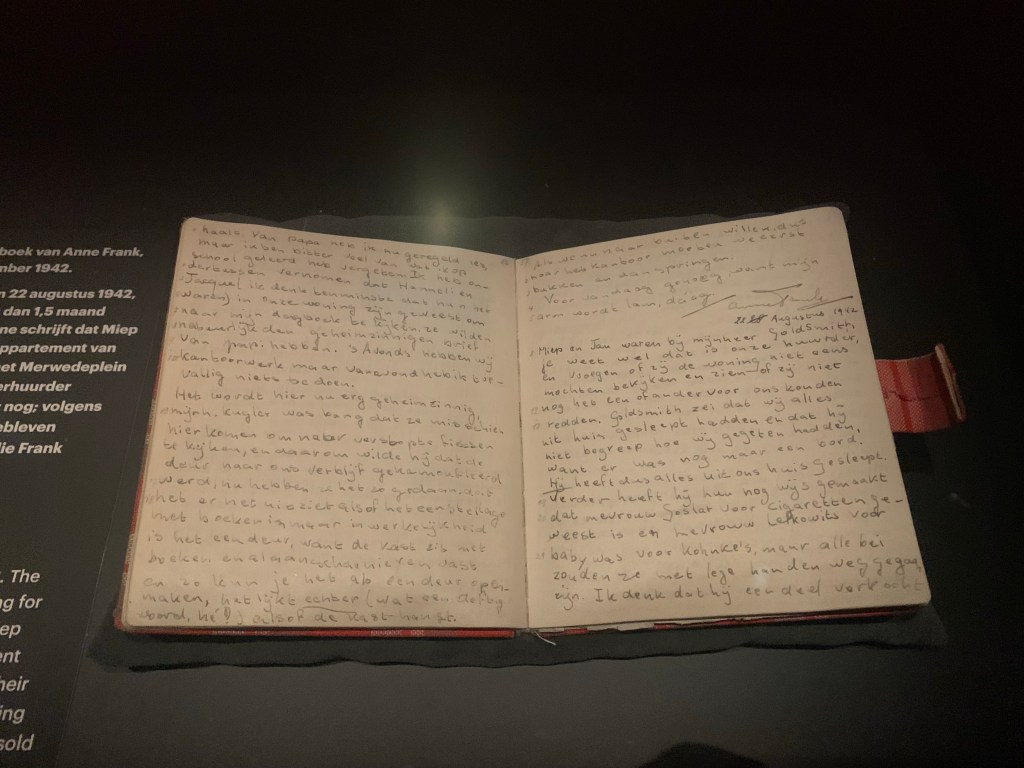 boek van Anne Frank,
mber 1942.
n 22 augustus 1942,
dan 1,5 maand
ne schrijft dat Miep
ppartement van
et Merwedeplein
erhuurder
nog; volgens
ebleven
lie Frank
. The
ng for
ep
ent
heir
ing
sold
haals. Van papa heb ik nu geregeld les,
maar ik ben bitter veel van dat ik op
school geleerd heb vergeten. Ik heb on-
dertussen vernomen dat Hanneli en
Jacque (ik denk tenminste dat hen het
waren) in onze woning zijn geweest om
naar mijn dagboek te kijken, ze wilden
natuurlijk den geheimzinnigen brief
van pupsi hebben. 's Avonds hebben wij
kantoorwerk maar vanavond heb ik toe-
vallig niets te doen.
Het wordt hier nu erg geheimzinnig,
mijnh. Kugler was bang dat ze misschien
hier komen om naar verstopte fietsen
te kijken, en daarom wilde hij dat de
deur naar ons verblijf gekamoufleerd
werd, nu hebben ze het zo gedaan dat
het er net uitziet alsof het een stellage
met boeken is maar in werkelijkheid
is het een deur, want de kast zit met
boeken en al aan scharnieren vast
en zo kun je het als een deur open-
maken, het lijkt echter (wat een deftig
woord, hè!) alsof de kast hangt.
Als we nu naar buiten willen dus
naar het kantoor moeten we eerst
bukken en dan springen.
Voor vandaag genoeg want mijn
arm wordt lam, daag
Anne Frank
22 Augustus 1942
Miep en Jan waren bij mijnheer Goldsmith,
je weet wel dat is onze huurder,
en vroegen of zij de woning niet eens
mochten bekijken en zien of zij niet
nog het een of ander voor ons konden
redden. Goldsmith zei dat wij alles
uit huis gesleept hadden en dat hij
niet begreep hoe wij gegeten hadden,
want er was nog maar een bord.
Hij heeft dus alles uit ons huis gesleept.
Verder heeft hij hun nog wijs gemaakt
dat mevrouw Goslar voor cigaretten ge-
weest is en mevrouw Lefkowits voor
baby was voor Kohnke's, maar alle bei
zouden ze met lege handen weggegaan
zijn. Ik denk dat hij een deel verkocht